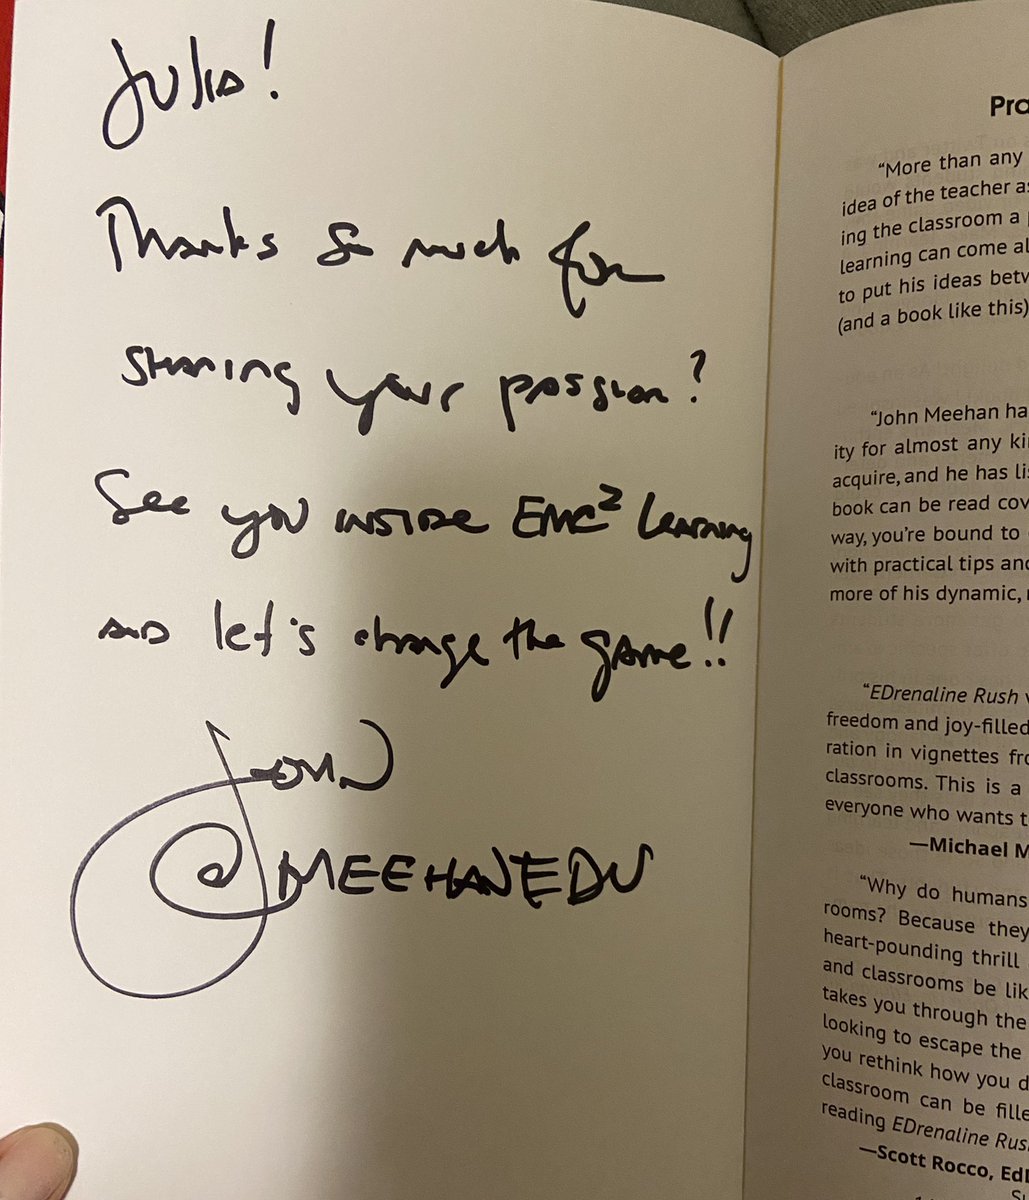 Julia!
Thanks so much for
sharing your passion?
See you inside EMC² Learning
and let's change the game!!
John
@MEEHANEDU
Pra
“More than any
idea of the teacher as
ing the classroom a
learning can come al
to put his ideas betw
(and a book like this)
“John Meehan ha
ity for almost any ki
acquire, and he has lis
book can be read cov
way, you’re bound to
with practical tips and
more of his dynamic,
“EDrenaline Rush
freedom and joy-filled
ration in vignettes fro
classrooms. This is a
everyone who wants t
—Michael M
“Why do humans
rooms? Because they
heart-pounding thrill
and classrooms be lik
takes you through the
looking to escape the
you rethink how you d
classroom can be fille
reading EDrenaline Rus
—Scott Rocco, Ed